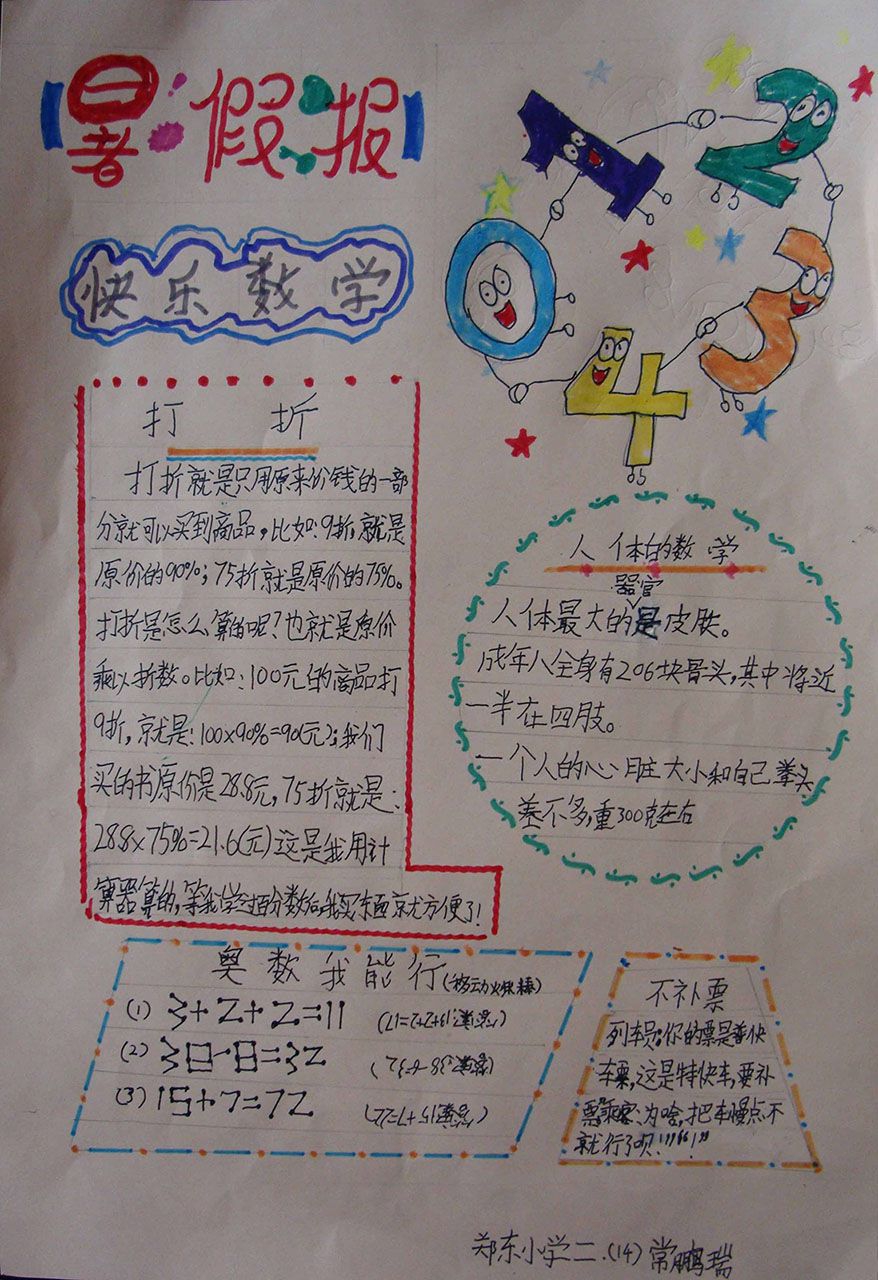 暑假报
快乐数学
1
2
0
3
4
打 折
打折就是只用原来价钱的一部
分就可以买到商品，比如：9折，就是
原价的90%；75折就是原价的75%。
打折是怎么算的呢？也就是原价
乘以折数。比如：100元的商品打
9折，就是：100×90%=90(元)；我们
买的书原价是28.8元，75折就是：
28.8×75%=21.6(元)这是我用计
算器算的，等我学过百分数后，我买东西就方便了！
人体的数学
器官
人体最大的是皮肤。
成年人全身有206块骨头，其中将近
一半在四肢。
一个人的心脏大小和自己拳头
差不多，重300克左右
奥数我能行(移动火柴棒)
(1) 3+2+2=11
(答案：19+2+2=17)
(2) 30-8=32
(答案：38-6=32)
(3) 15+7=72
(答案：15+7=22)
不补票
列车员：你的票是普快
车票，这是特快车，要补
票。乘客：为啥，把车慢点不
就行了呗！
郑东小学二.(14) 常鹏瑞